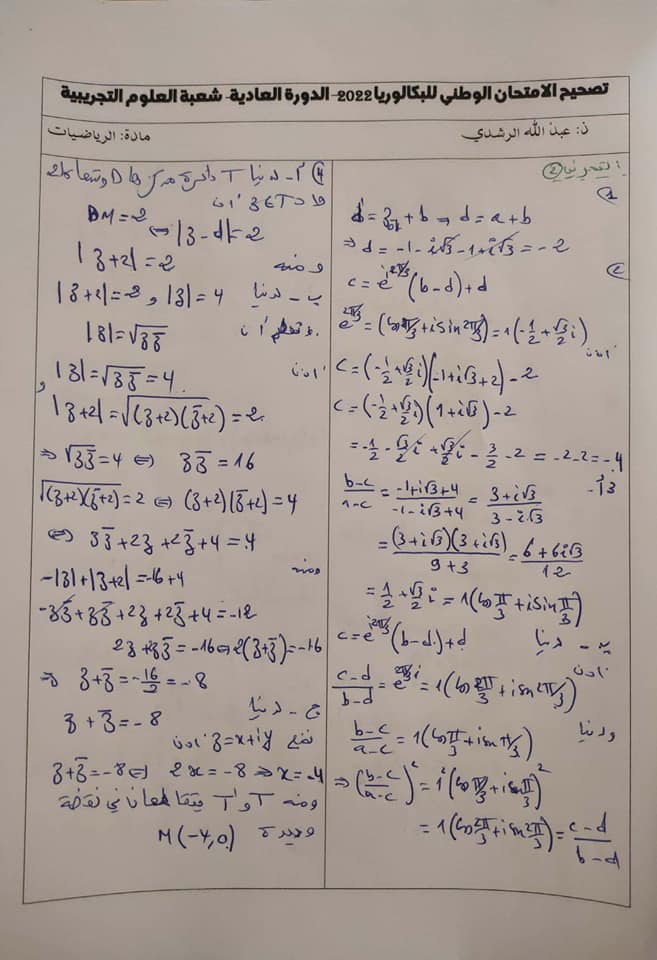 تصحيح الامتحان الوطني للبكالوريا 2022- الدورة العادية- شعبة العلوم التجريبية
ذ: عبد الله الرشدي
مادة: الرياضيات
التمرين 2
1
d = a + b
⇒ d = -1 - i√3 - 1 + i√3 = -2
2
c = e^{i2π/3} (b-d) + d
e^{i2π/3} = (cos 2π/3 + i sin 2π/3) = 1(-1/2 + √3/2 i)
اذن
c = (-1/2 + √3/2 i)(-1 + i√3 + 2) - 2
c = (-1/2 + √3/2 i)(1 + i√3) - 2
= -1/2 - √3/2 i + √3/2 i - 3/2 - 2 = -2 - 2 = -4
3 أ -
b-c/a-c = -1+i√3+4/-1-i√3+4 = 3+i√3/3-i√3
= (3+i√3)(3+i√3)/9+3 = 6+6i√3/12
= 1/2 + √3/2 i = 1(cos π/3 + i sin π/3)
ب - لدينا c = e^{i2π/3} (b-d) + d
اذن
c-d/b-d = e^{2π/3 i} = 1(cos 2π/3 + i sin 2π/3)
ولدينا b-c/a-c = 1(cos π/3 + i sin π/3)
⇒ (b-c/a-c)² = 1² (cos π/3 + i sin π/3)²
= 1(cos 2π/3 + i sin 2π/3) = c-d/b-d
4 أ - لدينا T دائرة مركزها D وشعاعها 2
DM = 2
⇔ |z-d| = 2
ومنه |z+2| = 2
ب - لدينا |z| = 4 و |z+2| = 2
ونعلم ان |z| = √zz̄
اذن |z| = √zz̄ = 4
و |z+2| = √(z+2)(z̄+2) = 2
⇒ √zz̄ = 4 ⇔ zz̄ = 16
√(z+2)(z̄+2) = 2 ⇔ (z+2)(z̄+2) = 4
⇔ zz̄ + 2z + 2z̄ + 4 = 4
ومنه -|z| + |z+2| = -16 + 4
-zz̄ + zz̄ + 2z + 2z̄ + 4 = -12
2z + 2z̄ = -16 ⇔ 2(z+z̄) = -16
⇒ z + z̄ = -16/2 = -8
ج - لدينا
z + z̄ = -8
نضع z = x + iy اذن
z + z̄ = -8 ⇔ 2x = -8 ⇒ x = -4
ومنه T و T' يتقاطعان في نقطة
وحيدة M(-4,0)